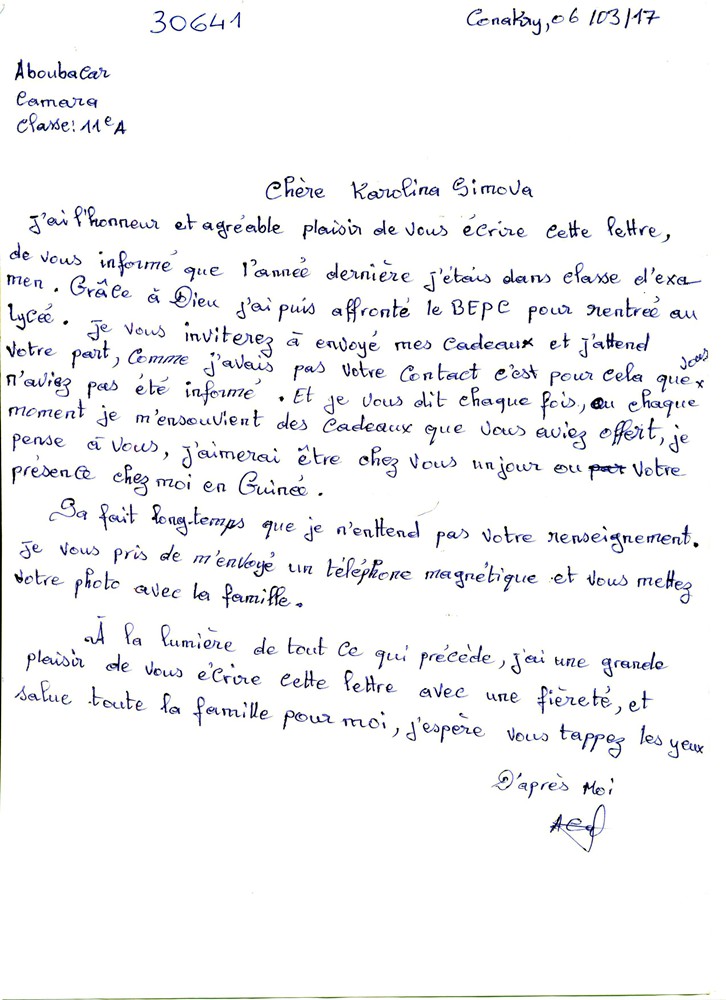 30641
Conakry, 06/03/17
Aboubacar
Camara
Classe: 11e A
Chère Karolina Simova
J'ai l'honneur et agréable plaisir de vous écrire cette lettre,
de vous informé que l'année dernière j'étais dans classe d'exa
men. Grâce à Dieu j'ai puis affronté le BEPC pour rentreé au
lyceé. Je vous inviterez à envoyé mes cadeaux et j'attend
votre part, comme j'avais pas votre contact c'est pour cela que vous
n'aviez pas été informé. Et je vous dit chaque fois, au chaque
moment je m'ensouvient des cadeaux que vous aviez offert, je
pense à vous, j'aimerai être chez vous un jour ou par votre
présence chez moi en Guineé.
Sa fait long-temps que je n'enttend pas votre renseignement.
Je vous pris de m'envoyé un téléphone magnétique et vous mettez
votre photo avec la famille.
À la lumière de tout ce qui précède, j'ai une grande
plaisir de vous écrire cette lettre avec une fièreté, et
salue toute la famille pour moi, j'espère vous tappez les yeux
D'après Moi